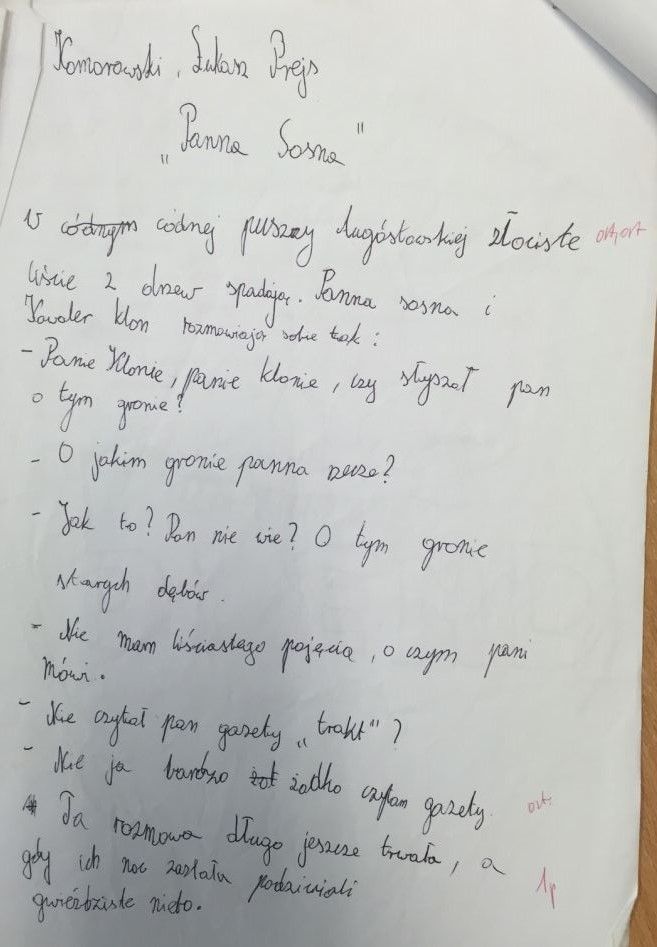 Komorowski, Łukasz Prejs
„Panna Sosna"
W códnym códnej puszczy Augóstowskiej złociste ort, ort
liście z drzew spadają. Panna sosna i
Kawaler klon rozmawiają sobie tak:
- Panie Klonie, panie klonie, czy słyszał pan
o tym gronie?
- O jakim gronie panna rzecze?
- Jak to? Pan nie wie? O tym gronie
starych dębów.
- Nie mam liściastego pojęcia, o czym pani
mówi.
- Nie czytał pan gazety „trakt"?
- Nie ja bardzo żot żadko czytam gazety. ort.
Ta rozmowa długo jeszcze trwała, a
gdy ich noc zastała podziwiali 1p
gwieździste niebo.